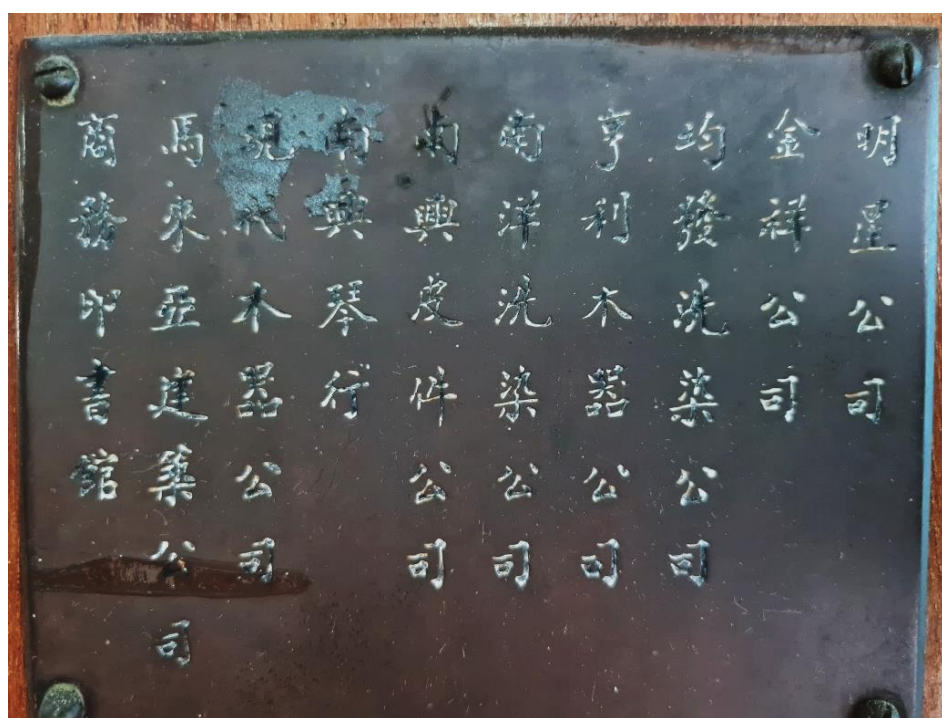 明星公司
金祥公司
均發洗染公司
亨利木器公司
南洋洗染公司
南興皮件公司
南興琴行
現代木器公司
馬來亞建築公司
商務印書館